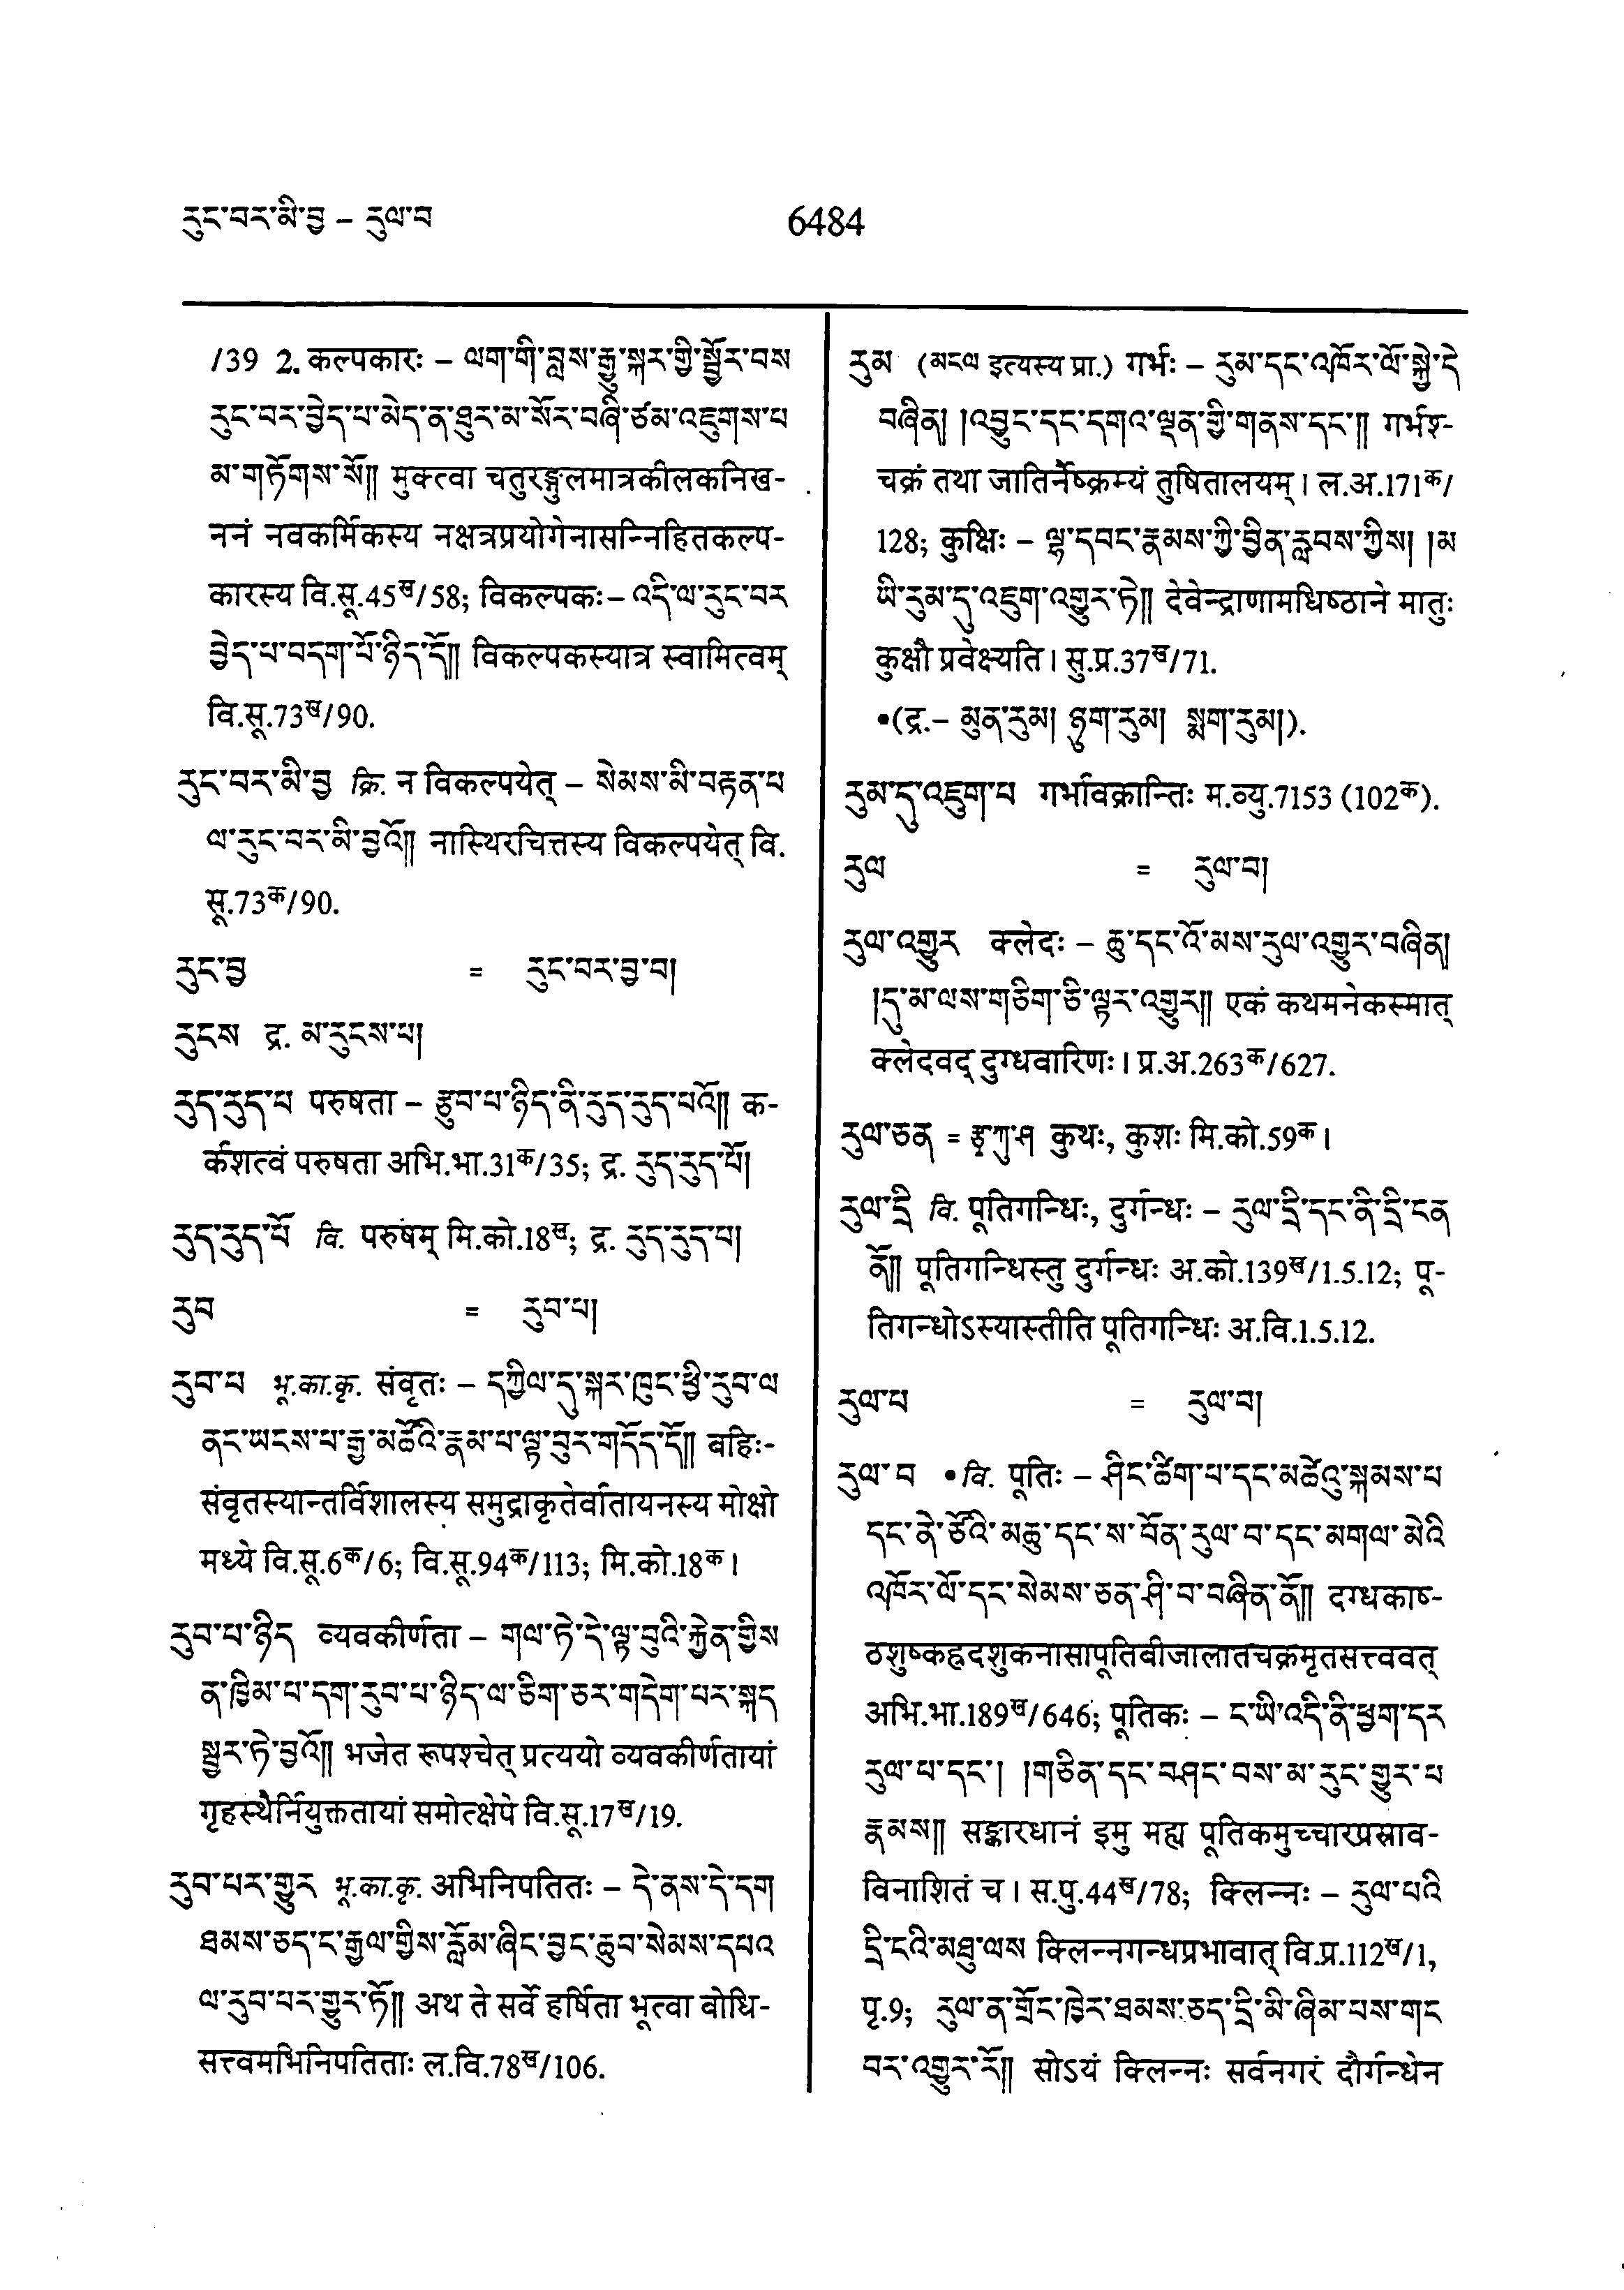 རུང་བར་མི་བྱ – རུལ་བ
6484
/39 2. कल्पकारः – ལག་གི་བླས་རྒྱུ་སྐར་གྱི་སྦྱོར་བས
རུང་བར་བྱེད་པ་མེད་ན་ཐུར་མ་སོར་བཞི་ཙམ་འཛུགས་པ
མ་གཏོགས་སོ༎ मुक्त्वा चतुरङ्गुलमात्रकीलकनिख-
ननं नवकर्मिकस्य नक्षत्रप्रयोगेनासन्निहितकल्प-
कारस्य वि.सू.45ख/58; विकल्पकः– འདི་ལ་རུང་བར
བྱེད་པ་བདག་པོ་ཉིད་དོ༎ विकल्पकस्यात्र स्वामित्वम्
वि.सू.73ख/90.
རུང་བར་མི་བྱ क्रि. न विकल्पयेत् – སེམས་མི་བརྟན་པ
ལ་རུང་བར་མི་བྱའོ༎ नास्थिरचित्तस्य विकल्पयेत् वि.
सू.73क/90.
རུང་བྱ = རུང་བར་བྱ་བ།
རུངས द्र. མ་རུངས་པ།
རུད་རུད་པ परुषता – རྩུབ་པ་ཉིད་ནི་རུད་རུད་པའོ༎ क-
र्कशत्वं परुषता अभि.भा.31क/35; द्र. རུད་རུད་པོ།
རུད་རུད་པོ वि. परुषम् मि.को.18ख; द्र. རུད་རུད་པ།
རུབ = རུབ་པ།
རུབ་པ भू.का.कृ. संवृतः – དཀྱིལ་དུ་སྐར་ཁུང་ཕྱི་རུབ་ལ
ནང་ཡངས་པ་རྒྱ་མཚོའི་རྣམ་པ་ལྟ་བུར་གདོད་དོ༎ बहिः-
संवृतस्यान्तर्विशालस्य समुद्राकृतेर्वातायनस्य मोक्षो
मध्ये वि.सू.6क/6; वि.सू.94क/113; मि.को.18क।
རུབ་པ་ཉིད व्यवकीर्णता – གལ་ཏེ་དེ་ལྟ་བུའི་རྐྱེན་གྱིས
ན་ཁྱིམ་པ་དག་རུབ་པ་ཉིད་ལ་ཅིག་ཅར་གདེག་པར་སྐད
སྦྱར་ཏེ་བྱའོ༎ भजेत रूपश्चेत् प्रत्ययो व्यवकीर्णतायां
गृहस्थैर्नियुक्ततायां समोत्क्षेपे वि.सू.17ख/19.
རུབ་པར་གྱུར भू.का.कृ. अभिनिपतितः – དེ་ནས་དེ་དག
ཐམས་ཅད་ང་རྒྱལ་གྱིས་རློམ་ཞིང་བྱང་ཆུབ་སེམས་དཔའ
ལ་རུབ་པར་གྱུར་ཏོ༎ अथ ते सर्वे हर्षिता भूत्वा बोधि-
सत्त्वमभिनिपतिताः ल.वि.78ख/106.
རུམ (མངལ इत्यस्य प्रा.) गर्भः – རུམ་དང་འཁོར་ལོ་སྐྱེ་དེ
བཞིན། །འབྱུང་དང་དགའ་ལྡན་གྱི་གནས་དང་༎ गर्भश्-
चक्रं तथा जातिर्नैष्क्रम्यं तुषितालयम्। ल.अ.171क/
128; कुक्षिः – ལྷ་དབང་རྣམས་ཀྱི་བྱིན་རླབས་ཀྱིས། །མ
ཡི་རུམ་དུ་འཇུག་འགྱུར་ཏེ༎ देवेन्द्राणामधिष्ठाने मातुः
कुक्षौ प्रवेक्ष्यति। सु.प्र.37ख/71.
•(द्र.– མུན་རུམ། ཉུག་རུམ། སྨག་རུམ།).
རུམ་དུ་འཇུག་པ गर्भावक्रान्तिः म.व्यु.7153 (102क).
རུལ = རུལ་བ།
རུལ་འགྱུར क्लेदः – ཆུ་དང་འོ་མས་རུལ་འགྱུར་བཞིན།
།དུ་མ་ལས་གཅིག་ཅི་ལྟར་འགྱུར༎ एकं कथमनेकस्मात्
क्लेदवद् दुग्धवारिणः। प्र.अ.263क/627.
རུལ་ཅན = རྩྭ་ཀུ་ཤ कुथः, कुशः मि.को.59क।
རུལ་དྲི वि. पूतिगन्धिः, दुर्गन्धः – རུལ་དྲི་དང་ནི་དྲི་ངན
ནོ༎ पूतिगन्धिस्तु दुर्गन्धः अ.को.139ख/1.5.12; पू-
तिगन्धोऽस्यास्तीति पूतिगन्धिः अ.वि.1.5.12.
རུལ་པ = རུལ་བ།
རུལ་བ •वि. पूतिः – ཤིང་ཚིག་པ་དང་མཚེའུ་སྐམས་པ
དང་ནེ་ཙོའི་མཆུ་དང་ས་བོན་རུལ་བ་དང་མགལ་མེའི
འཁོར་ལོ་དང་སེམས་ཅན་ཤི་བ་བཞིན་ནོ༎ दग्धकाष्-
ठशुष्कह्रदशुकनासापूतिबीजालातचक्रमृतसत्त्ववत्
अभि.भा.189ख/646; पूतिकः – ང་ཡི་འདི་ནི་ཕྱག་དར
རུལ་པ་དང་། །གཅིན་དང་བཤང་བས་མ་རུང་གྱུར་པ
རྣམས༎ सङ्कारधानं इमु मह्य पूतिकमुच्चारप्रस्राव-
विनाशितं च। स.पु.44ख/78; क्लिन्नः – རུལ་པའི
དྲི་ངའི་མཐུ་ལས क्लिन्नगन्धप्रभावात् वि.प्र.112ख/1,
पृ.9; རུལ་ན་གྲོང་ཁྱེར་ཐམས་ཅད་དྲི་མི་ཞིམ་པས་གང
བར་འགྱུར་རོ༎ सोऽयं क्लिन्नः सर्वनगरं दौर्गन्धेन